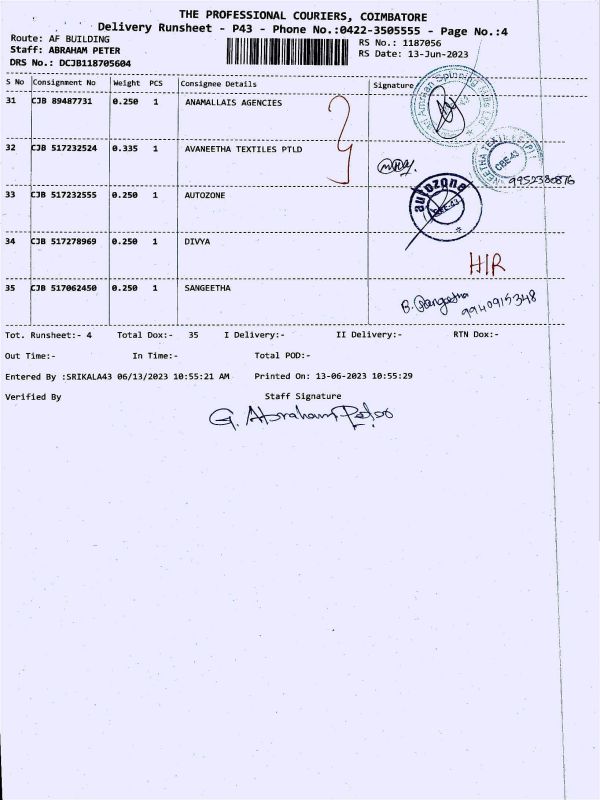 THE PROFESSIONAL COURIERS, COIMBATORE
Delivery Runsheet - P43 - Phone No.:0422-3505555 - Page No.:4
Route: AF BUILDING
Staff: ABRAHAM PETER
DRS No.: DCJB118705604
RS No.: 1187056
RS Date: 13-Jun-2023
S No Consignment No Weight PCS Consignee Details Signature
31 CJB 89487731 0.250 1 ANAMALLAIS AGENCIES
32 CJB 517232524 0.335 1 AVANEETHA TEXTILES PTLD
CBE-43
9952380876
33 CJB 517232555 0.250 1 AUTOZONE
autozone
CBE-43
34 CJB 517278969 0.250 1 DIVYA
H/R
35 CJB 517062450 0.250 1 SANGEETHA
B. Sangeetha
9940915348
Tot. Runsheet:- 4 Total Dox:- 35 I Delivery:- II Delivery:- RTN Dox:-
Out Time:- In Time:- Total POD:-
Entered By :SRIKALA43 06/13/2023 10:55:21 AM Printed On: 13-06-2023 10:55:29
Verified By Staff Signature
G. Abraham Peter